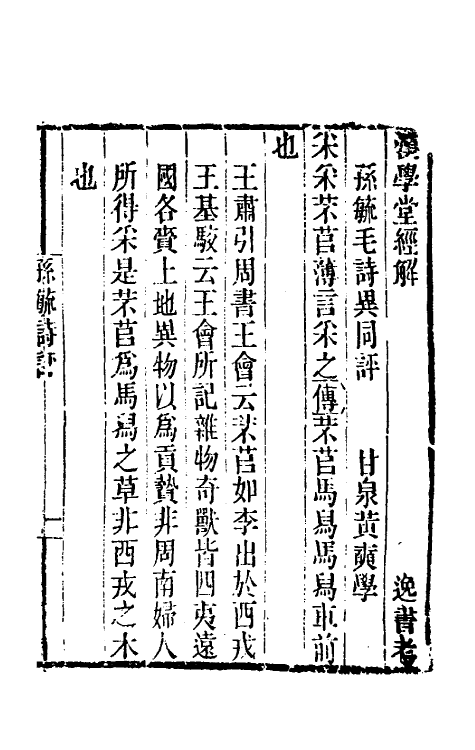 漢學堂經解　逸書考
孫毓毛詩異同評　甘泉黃奭學
采采芣苢薄言采之傳芣苢馬舄馬舄車前
也
王肅引周書王會云芣苢如李出於西戎
王基駁云王會所記雜物奇獸皆四夷遠
國各齎土地異物以爲貢贄非周南婦人
所得采是芣苢爲馬舄之草非西戎之木
也
孫毓詩評
一